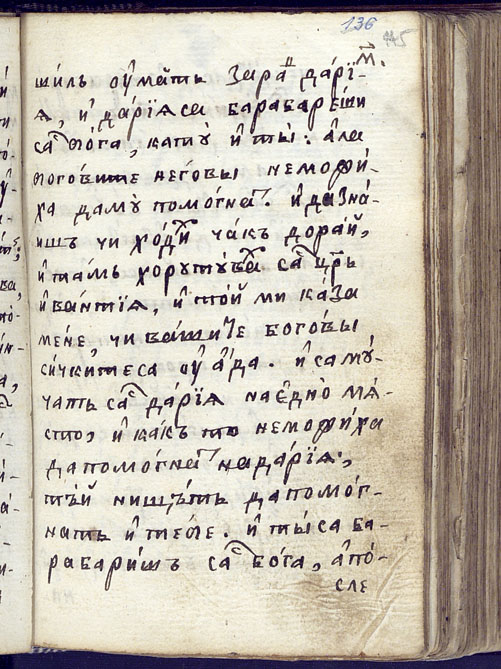 136
445
м҃.
шилъ оу҆мать зарад дарї-
ѧ, и҆ дарїѧ са барабареши
са бо́га, като̀ и҆ ты̀. а҆ла
богові́те не́говы немо́жи-
ха дамꙋ̀ помо́гнат. и҆ дазна́-
ишъ чи хо́ди чакъ дорай,
и҆ тамъ хорꙋтꙋва са цр҃ь
и҆ва́нтїѧ, и҆ то́й ми каза
ме́не, чи вашите бого́вы
си́чкитеса оу҆ а҆́да. и҆ са мꙋ́-
чатъ са да́рїѧ наѐдно̀ мѧ́-
сто, и҆ ка́къ то немо́жиха
да помо́гнат на да́рїѧ,
тъ́й нищѣ́тъ да помо́г-
натъ и҆ тебе. и҆ ты̀ са ба-
рабари́шъ са бо́га, а҆ по́-
сле